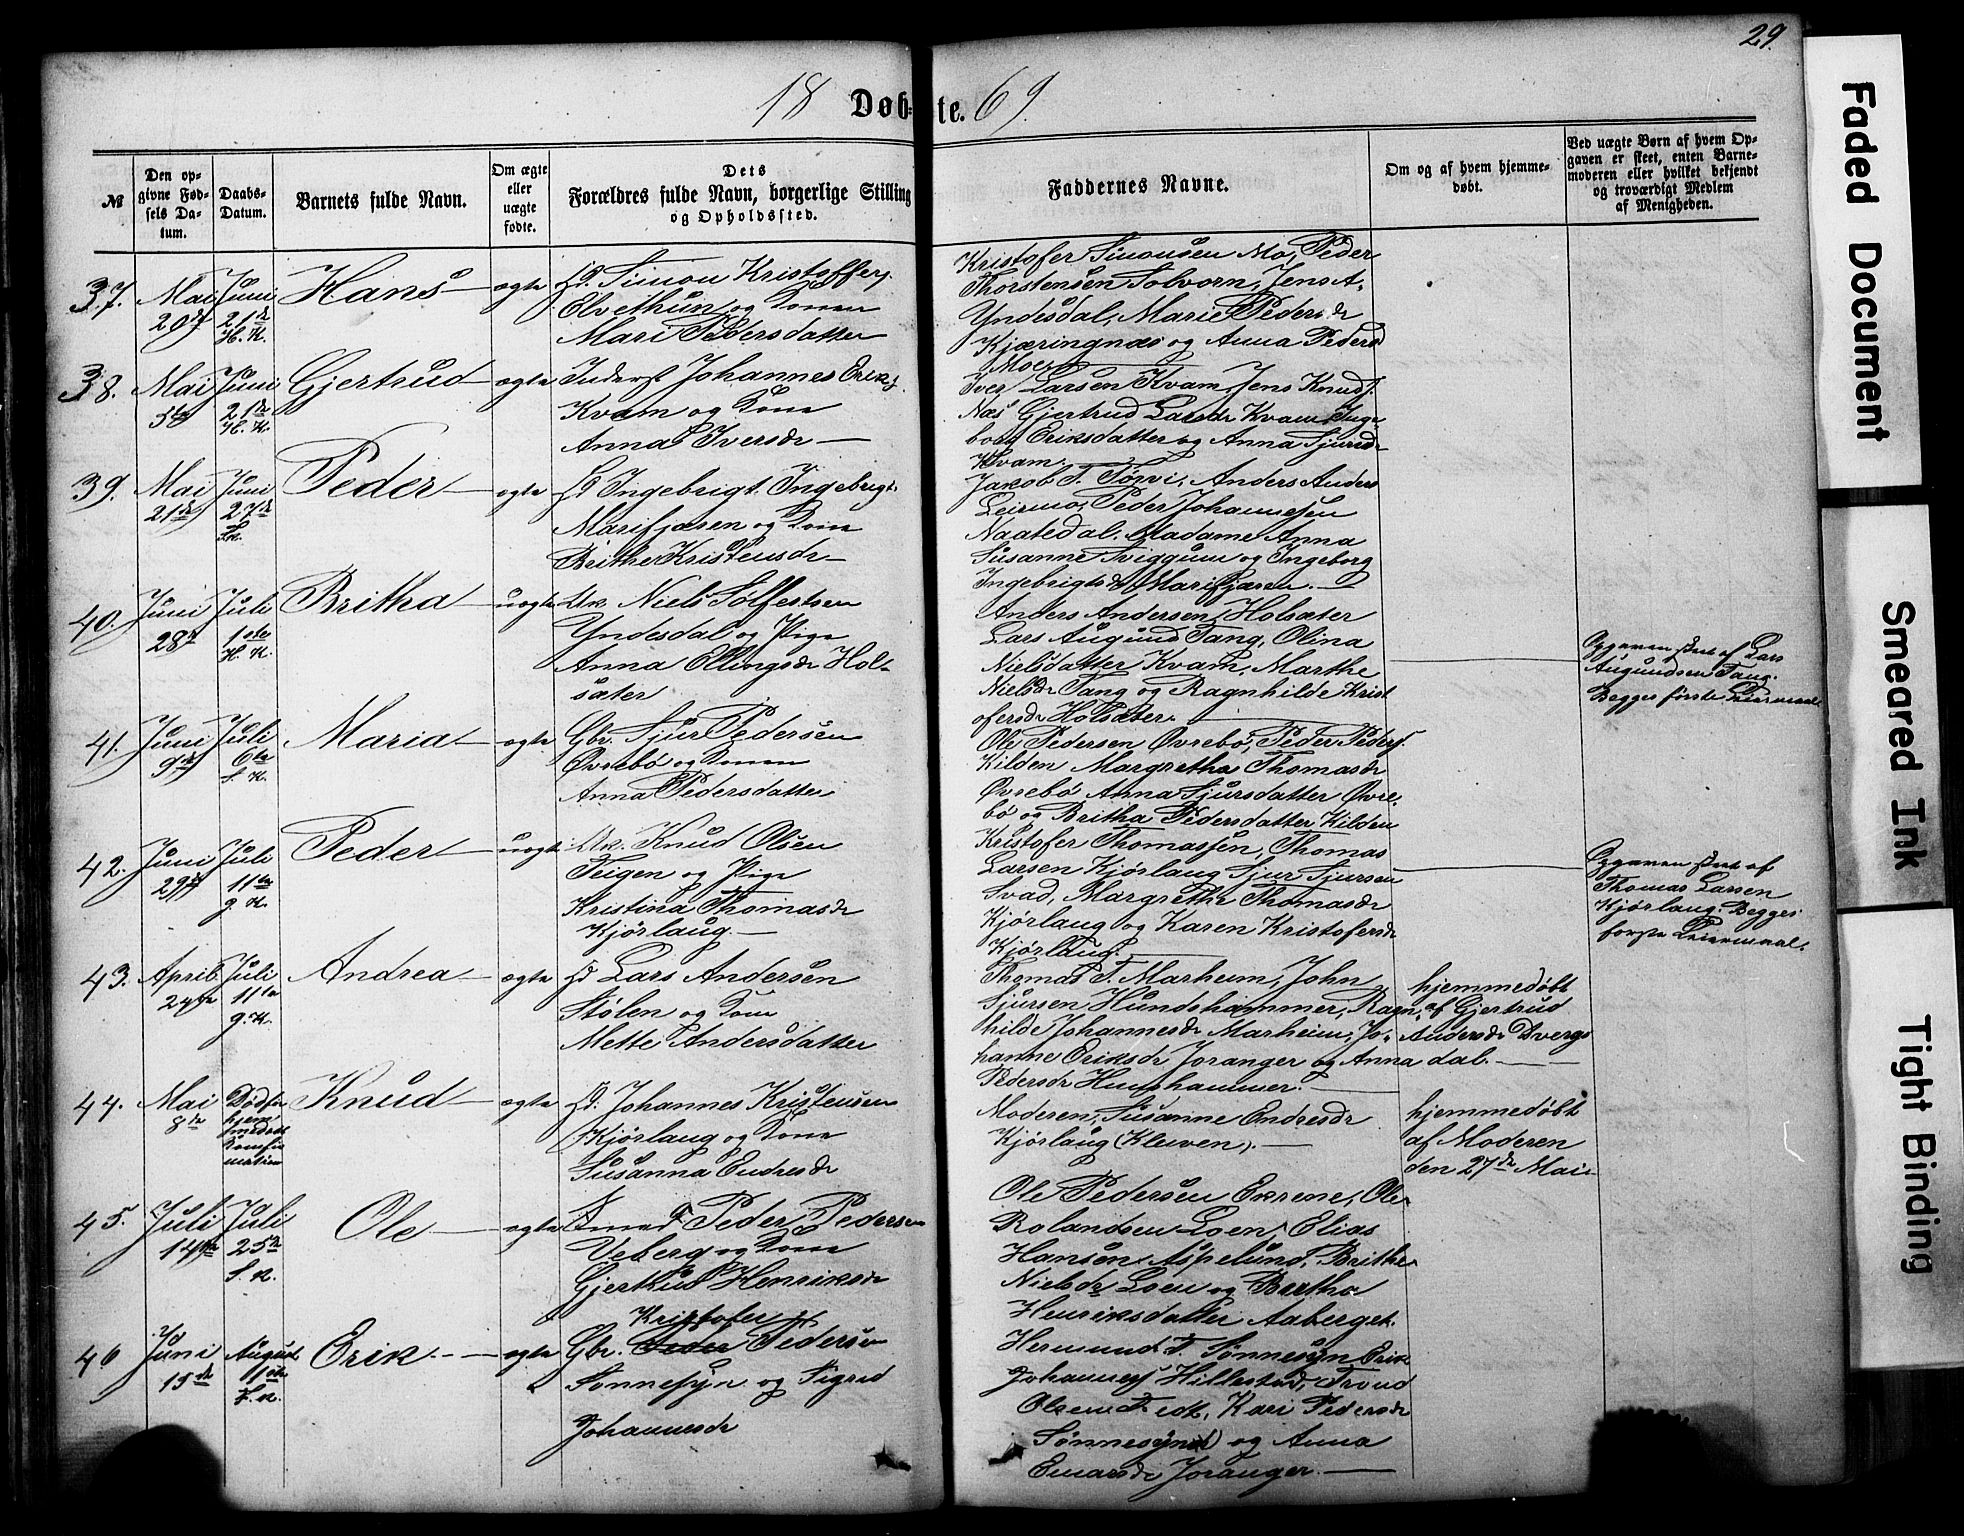 29.
18 Døb-te. 69.
№
Den op-
givne Fød-
sels Da-
tum.
Daabs-
Datum.
Barnets fulde Navn.
Om ægte
eller
uægte
fødte.
Dets
Forældres fulde Navn, borgerlige Stilling
og Opholdssted.
Faddernes Navne.
Om og af hvem hjemme-
døbt.
Ved uægte Børn af hvem Op-
gaven er skeet, enten Barne-
moderen eller hvilket bekjendt
og troværdigt Medlem
af Menigheden.
37.
Mai
20de
Juni
21de
H. K.
Hans
ægte
Simon Kristoffers.
Elvethun og Konen
Mari Pedersdatter
Kristofer Simonsen Mo, Peder
Thorstensen Solvorn, Jens A.
Yndesdal, Marie Pedersdr
Kjæringnæs og Anna Pedersd
Moe
38.
Mai
5te
Juni
21de
H. K.
Gjertrud
ægte
Inderst Johannes Eriks.
Kvam og Kone
Anna Iversdr
Iver Larsen Kvam, Jens Knuds.
Næs Gjertrud Larsdr Kvam Inge-
borg Eriksdatter og Anna Sjursdr
Kvam.
39.
Mai
21de
Juni
27de
Peder
ægte
Ingebrigt Ingebrigt.
Marifjæren og Kone
Brithe Kristensdr
Jakob T. Sørvi, Anders Anders
Leirmo, Peder Johannesen
Naatedal. Madame Anna
Susanne Sviggum og Ingeborg
Ingebrigtsdr Marifjæren.
40.
Juni
28de
Juli
1ste
H. K.
Britha
uægte
Uk. Niels Sølfestsen
Yndesdal og Pige
Anna Ellingsdr Hol-
sæter
Anders Andersen Holsæter
Lars Augund Tang, Olina
Nielsdatter Kvam, Marthe
Nielsdr Tang og Ragnhilde Krist
ofersdr Holsæter.
Opgaven skeet af Lars
Augundsen Tang.
Begges første Leiermaal
41.
Juni
9de
Juli
6te
S. K.
Maria
ægte
Gbr. Sjur Pedersen
Øvrebø og Konen
Anna Pedersdatter
Ole Pedersen Øvrebø, Peder Peders.
Kilden Margretha Thomasdr
Øvrebø Anna Sjursdatter Øvre-
bø og Britha Pedersdatter Kilden
42.
Juni
29de
Juli
11te
g. K.
Peder
uægte
Uk. Knud Olsen
Teigen og Pige
Kristina Thomasdr
Kjørlaug.
Kristofer Thomassen, Thomas
Larsen Kjørlaug Sjur Sjursen
Svad, Margrethe Thomasdr
Kjørlaug og Karen Kristofersdr
Kjørlaug.
Opgaven skeet af
Thomas Larsen
Kjørlaug. Begges
første Leiermaal.
43.
April
24de
Juli
11te
g. K.
Andrea
ægte
Lars Andersen
Stølen og Kone
Mette Andersdatter
Thomas T. Marheim, John
Sjursen Hundshammer, Ragn-
hilde Johannesdr Marheim, Jo-
hanne Eriksdr Joranger og Anna
Pedersdr Hundshammer.
hjemmedøbt
af Gjertrud
Andersdr Dverg-
dal.
44.
Mai
8de
Død før
hjem-
medaab
confir
mation
Knud
ægte
Johannes Kristensen
Kjørlaug og Kone
Susanna Endresdr
Moderen, Susanne Endresdr
Kjørlaug (Kleiven).
hjemmedøbt
af Moderen
den 27de Mai
45.
Juli
14de
Juli
25de
S. K.
Ole
ægte
Peder Pedersen
Veberg og Kone
Gjertrud Henriksdr
Ole Pedersen Ekrene, Ole
Rolandsen Loen, Elias
Hansen Aspelund, Brithe
Nielsdr Loen og Bertha
Henriksdatter Aaberget.
46
Juni
15de
August
1ste
S. K.
Erik
ægte
Kristofer
Gbr. Peder Pedersen
Sønnesyn og Sigrid
Johannesdr
Hermund T. Sønnesyn Erik
Johannes. Hillestad, Trond
Olsen Fedt, Kari Pedersdr
Sønnesyn og Anna
Einarsdr Joranger.
Faded Document
Smeared Ink
Tight Binding